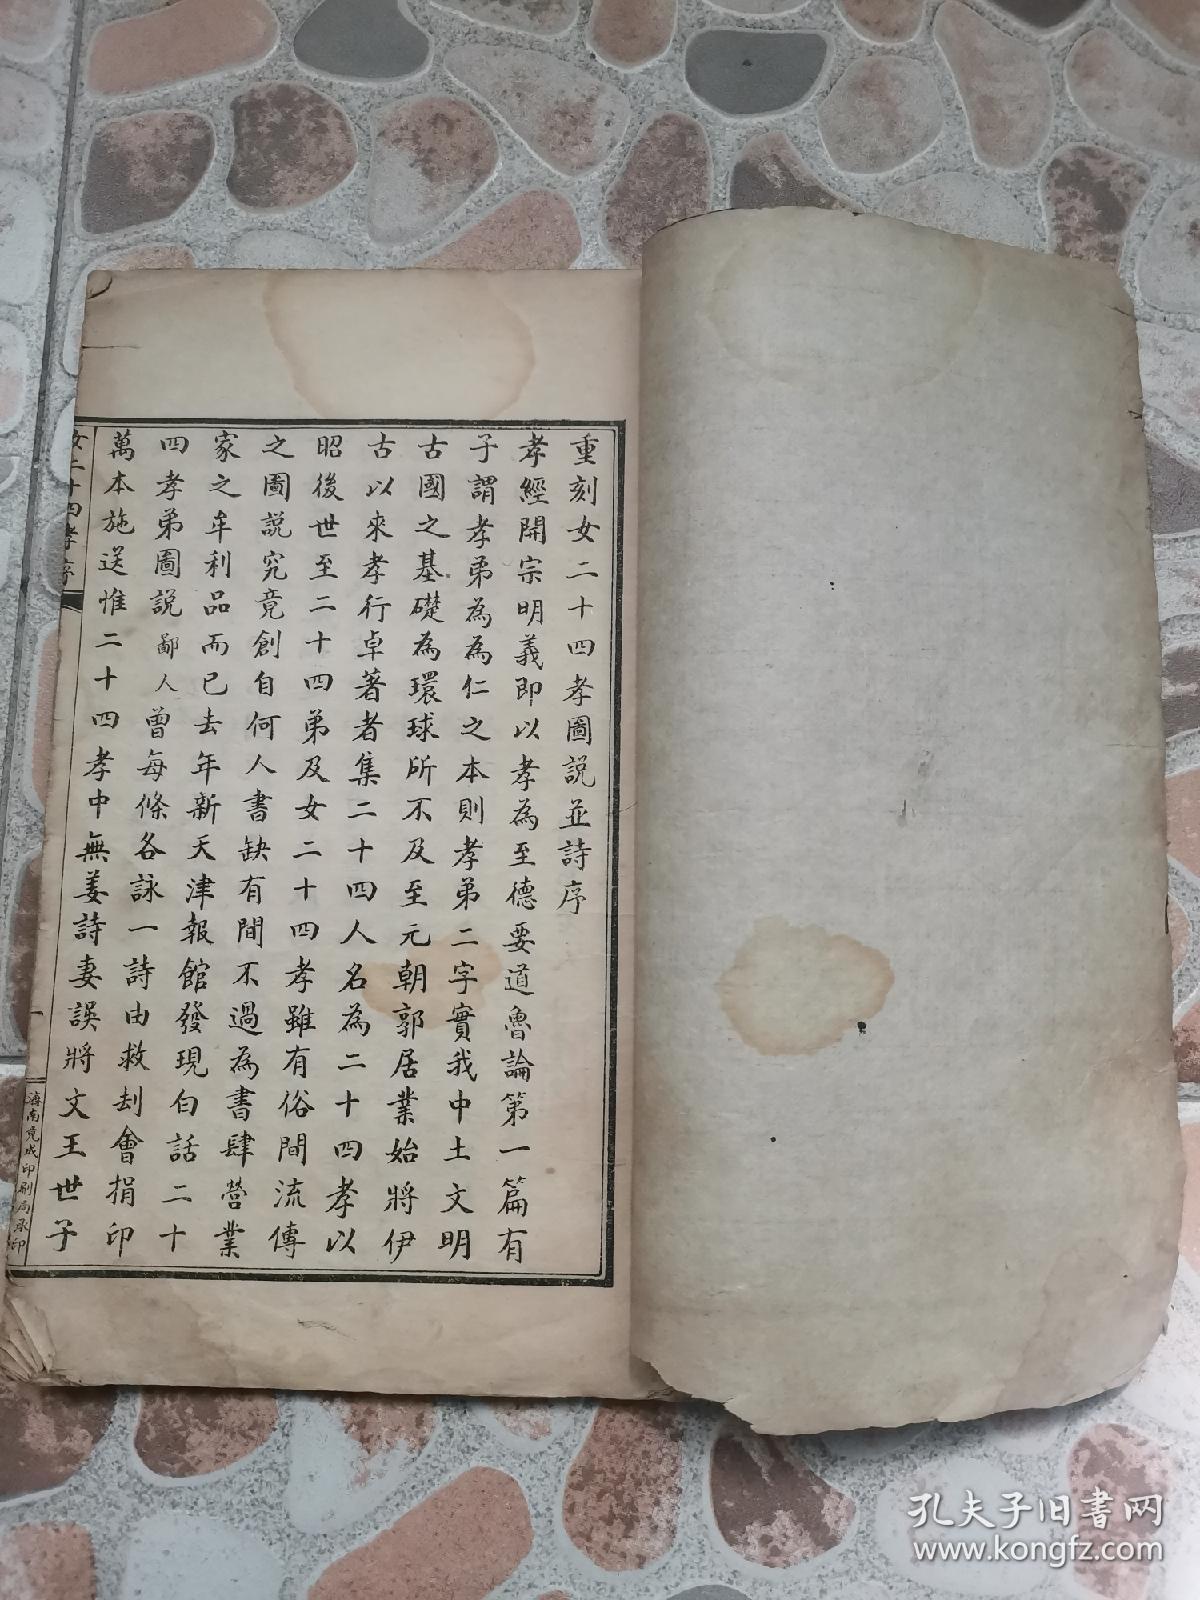 重刻女二十四孝圖說並詩序
孝經開宗明義即以孝為至德要道魯論第一篇有
子謂孝弟為為仁之本則孝弟二字實我中土文明
古國之基礎為環球所不及至元朝郭居業始將伊
古以來孝行卓著者集二十四人名為二十四孝以
昭後世至二十四弟及女二十四孝雖有俗間流傳
之圖說究竟創自何人書缺有間不過為書肆營業
家之牟利品而已去年新天津報館發現白話二十
四孝弟圖說鄙人曾每條各詠一詩由救刦會捐印
萬本施送惟二十四孝中無姜詩妻誤將文王世子
女二十四孝序
一
濟南競成印刷局承印
孔夫子旧書网
www.kongfz.com